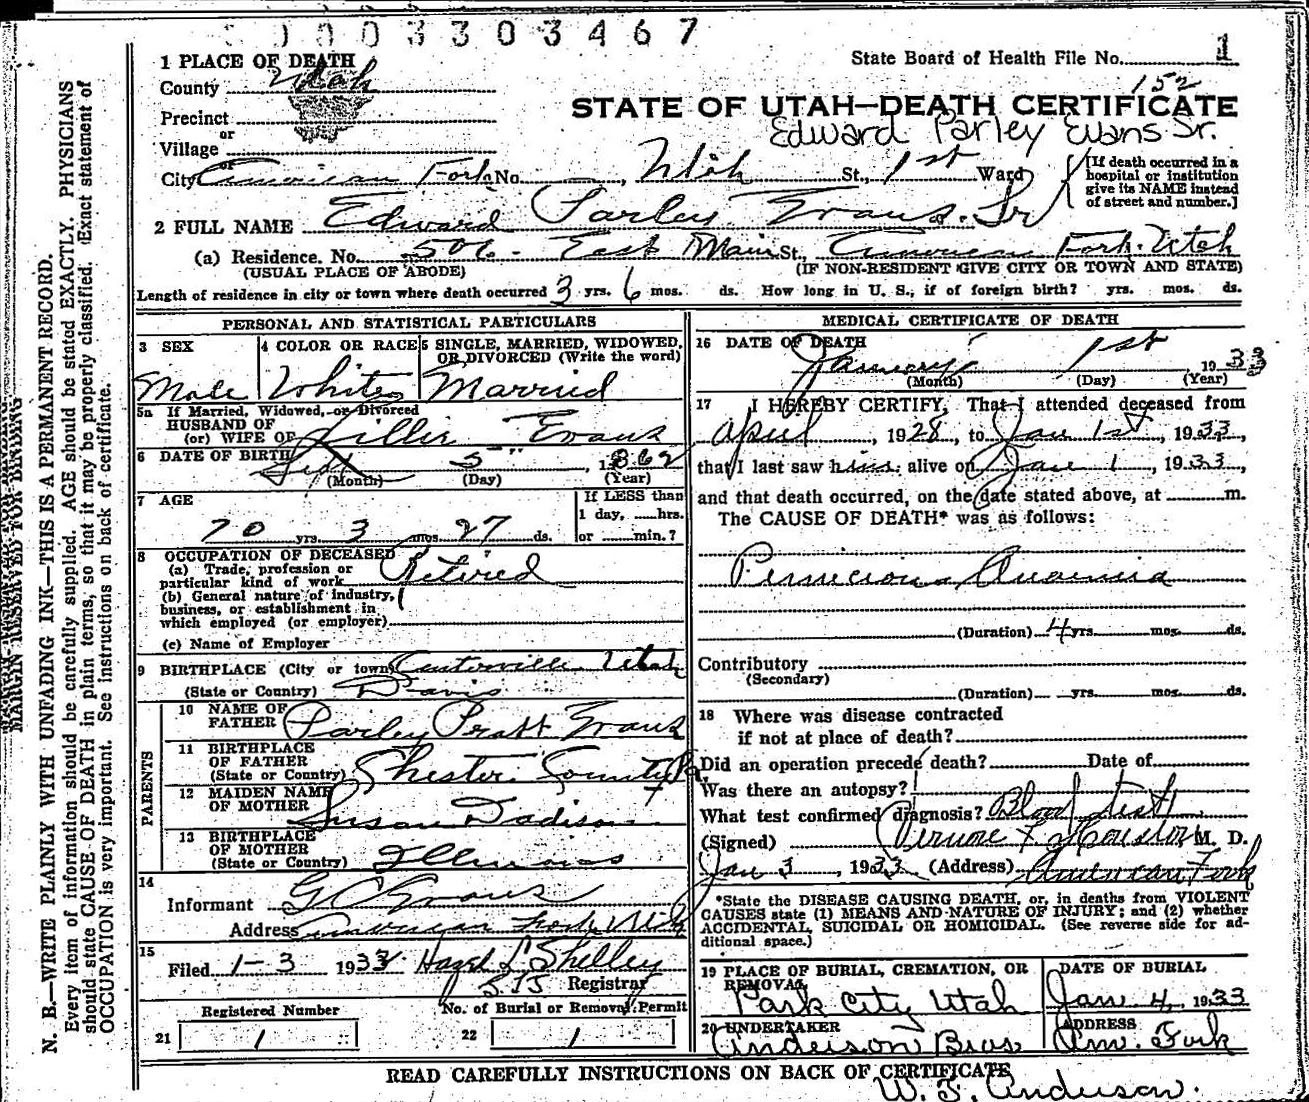 0003303467
1 PLACE OF DEATH
State Board of Health File No. 1
152
County Utah
STATE OF UTAH—DEATH CERTIFICATE
Precinct
or
Edward Parley Evans Sr.
Village
or
City American Fork No. , Utah St., 1st Ward
[If death occurred in a hospital or institution give its NAME instead of street and number.]
2 FULL NAME Edward Parley Evans. Sr
(a) Residence. No. 506. East Main St., American Fork. Utah
(USUAL PLACE OF ABODE) (IF NON-RESIDENT GIVE CITY OR TOWN AND STATE)
Length of residence in city or town where death occurred 3 yrs. 6 mos. ds. How long in U. S., if of foreign birth? yrs. mos. ds.
PERSONAL AND STATISTICAL PARTICULARS
3 SEX 4 COLOR OR RACE 5 SINGLE, MARRIED, WIDOWED, OR DIVORCED (Write the word)
Male White Married
5a If Married, Widowed, or Divorced
HUSBAND OF
(or) WIFE OF Lillie Evans
6 DATE OF BIRTH Sept 5" , 1862
(Month) (Day) (Year)
7 AGE
If LESS than
1 day, hrs.
70 yrs. 3 mos. 27 ds. or min.?
8 OCCUPATION OF DECEASED
(a) Trade, profession or
particular kind of work Retired
(b) General nature of industry,
business, or establishment in
which employed (or employer)
(c) Name of Employer
9 BIRTHPLACE (City or town) Centerville Utah
(State or Country) Davis
PARENTS
10 NAME OF
FATHER Parley Pratt Evans
11 BIRTHPLACE
OF FATHER
(State or Country) Chester County Pa.
12 MAIDEN NAME
OF MOTHER Susan
13 BIRTHPLACE
OF MOTHER
(State or Country) Illinois
14
Informant G C Evans
Address American Fork Utah
15
Filed 1-3 1933 Hazel L Shelley
Registrar
Registered Number No. of Burial or Removal Permit
21 1 22 1
MEDICAL CERTIFICATE OF DEATH
16 DATE OF DEATH
January 1st 1933
(Month) (Day) (Year)
17 I HEREBY CERTIFY, That I attended deceased from
April , 1928, to Jan 1st, 1933,
that I last saw him alive on Jan 1, 1933,
and that death occurred, on the date stated above, at m.
The CAUSE OF DEATH* was as follows:
Pernicious Anaemia
(Duration) 4 yrs. mos. ds.
Contributory
(Secondary)
(Duration) yrs. mos. ds.
18 Where was disease contracted
if not at place of death?
Did an operation precede death? Date of
Was there an autopsy?
What test confirmed diagnosis? Blood test
(Signed) Houston M. D.
Jan 3, 1933 (Address) American Fork
*State the DISEASE CAUSING DEATH, or, in deaths from VIOLENT
CAUSES state (1) MEANS AND NATURE OF INJURY; and (2) whether
ACCIDENTAL, SUICIDAL OR HOMICIDAL. (See reverse side for ad-
ditional space.)
19 PLACE OF BURIAL, CREMATION, OR
REMOVAL
Park City Utah
DATE OF BURIAL
Jan 4, 1933
20 UNDERTAKER
Anderson Bros
ADDRESS
Am. Fork
READ CAREFULLY INSTRUCTIONS ON BACK OF CERTIFICATE
W. F. Anderson.
MARGIN RESERVED FOR BINDING
N. B.—WRITE PLAINLY WITH UNFADING INK—THIS IS A PERMANENT RECORD.
Every item of information should be carefully supplied. AGE should be stated EXACTLY. PHYSICIANS
should state CAUSE OF DEATH in plain terms, so that it may be properly classified. Exact statement of
OCCUPATION is very important. See instructions on back of certificate.